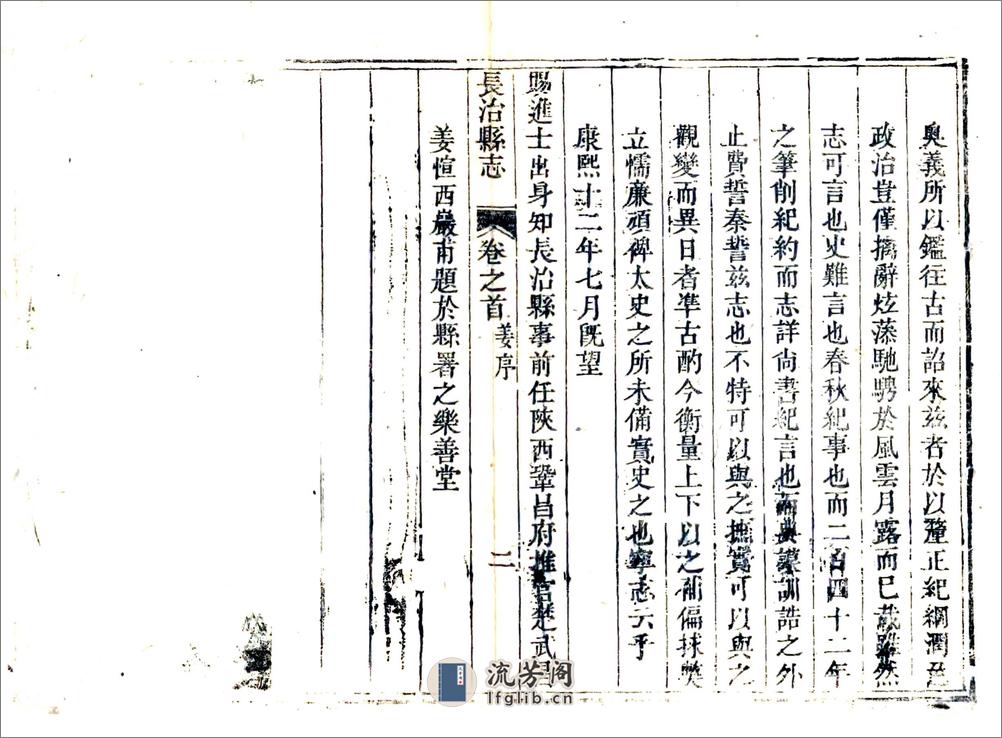 奥義所以鑑往古而詔來兹者於以釐正紀綱潤
政治豈僅摛辭炫藻馳騁於風雲月露而已哉雖然
志可言也史難言也春秋紀事也而二百四十二年
之筆削紀約而志詳尚書紀言也而典謨訓誥之外
止費誓秦誓兹志也不特可以與之摭實可以與之
觀變而異日者準古酌今衡量上下以之補偏捄獘
立懦廉頑裨太史之所未備實史之也寧志云乎
康熙十二年七月旣望
賜進士出身知長治縣事前任陝西鞏昌府推官楚武昌
長治縣志 卷之首 姜序 二
姜愃西巖甫題於縣署之樂善堂
流芳阁
lfglib.cn